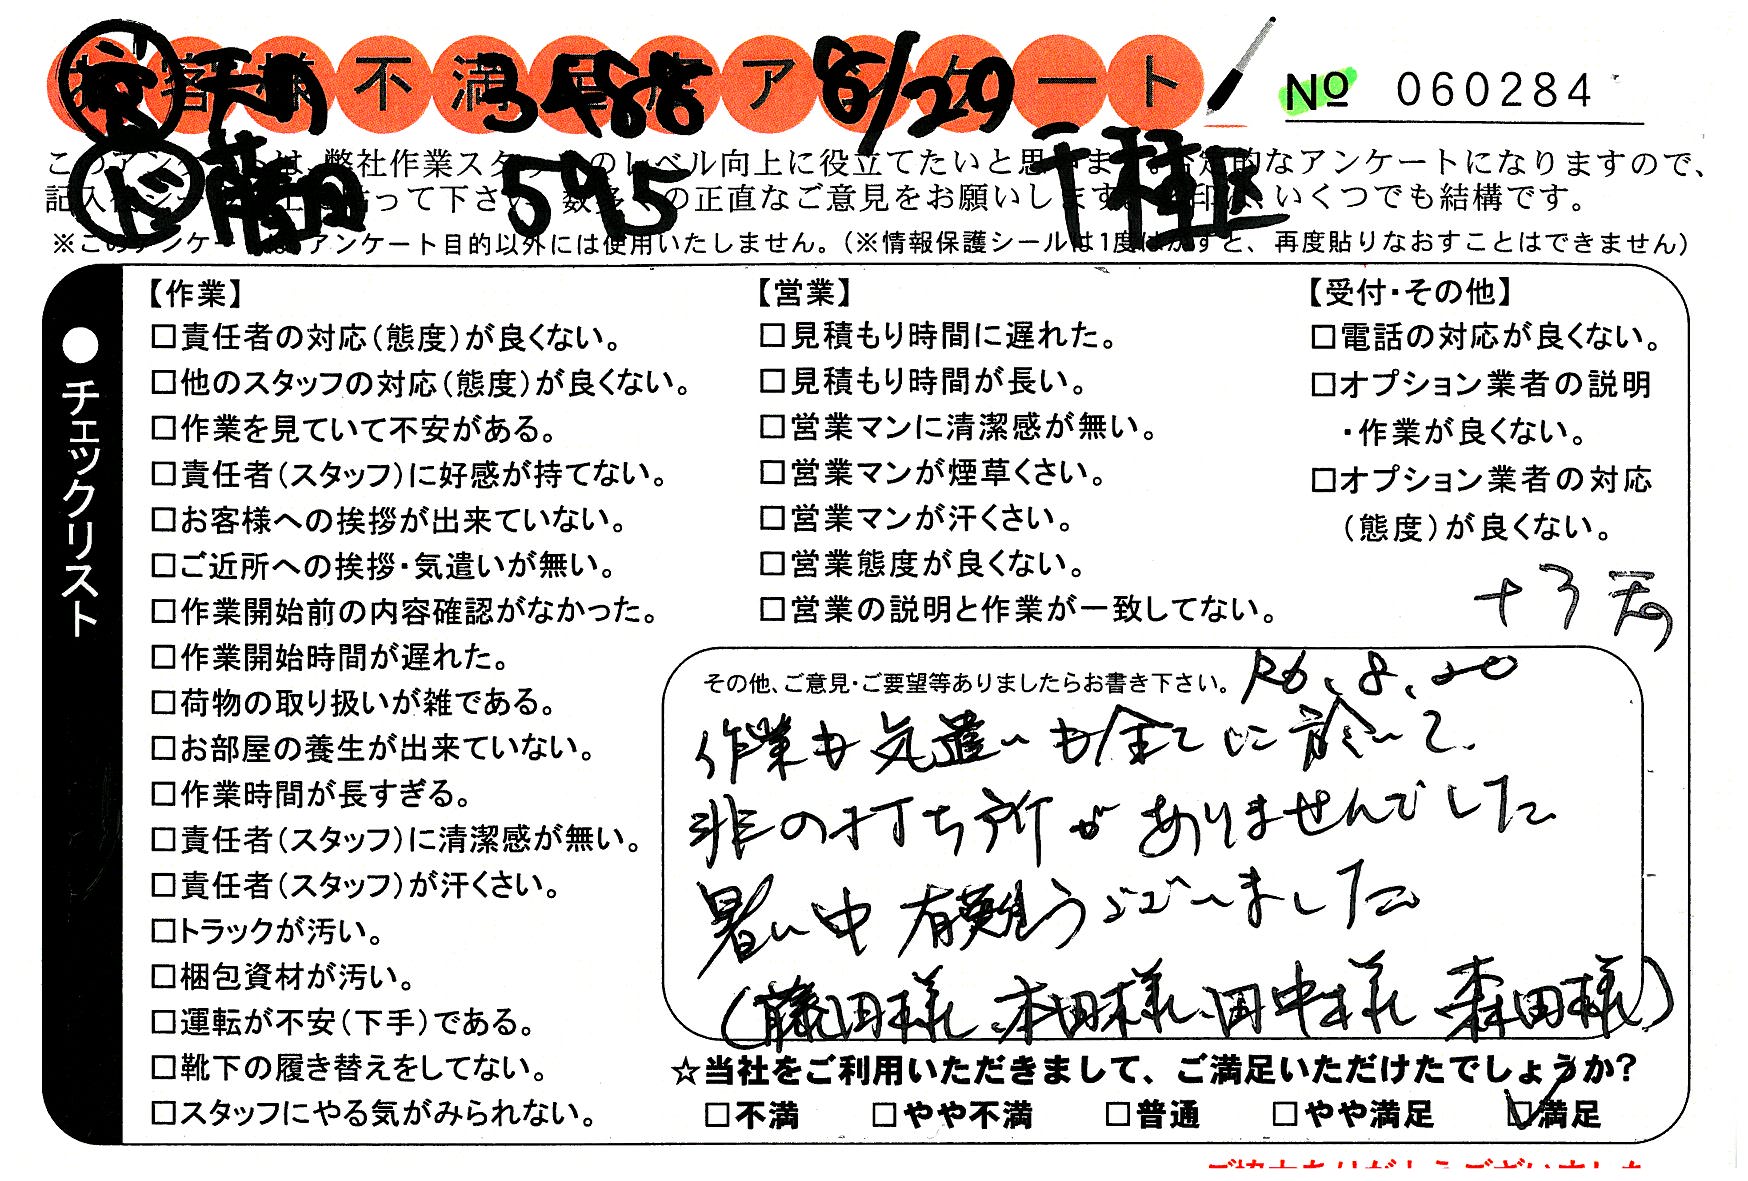 お客様不満足度アンケート
No 060284
8/29
千種区
藤田 595
このアンケートは、弊社作業スタッフのレベル向上に役立てたいと思います。否定的なアンケートになりますので、
記入後シールを上に貼って下さい。数多くの正直なご意見をお願いします。印は、いくつでも結構です。
※このアンケートは、アンケート目的以外には使用いたしません。(※情報保護シールは1度はがすと、再度貼りなおすことはできません)
●チェックリスト
【作業】
□責任者の対応(態度)が良くない。
□他のスタッフの対応(態度)が良くない。
□作業を見ていて不安がある。
□責任者(スタッフ)に好感が持てない。
□お客様への挨拶が出来ていない。
□ご近所への挨拶・気遣いが無い。
□作業開始前の内容確認がなかった。
□作業開始時間が遅れた。
□荷物の取り扱いが雑である。
□お部屋の養生が出来ていない。
□作業時間が長すぎる。
□責任者(スタッフ)に清潔感が無い。
□責任者(スタッフ)が汗くさい。
□トラックが汚い。
□梱包資材が汚い。
□運転が不安(下手)である。
□靴下の履き替えをしてない。
□スタッフにやる気がみられない。
【営業】
□見積もり時間に遅れた。
□見積もり時間が長い。
□営業マンに清潔感が無い。
□営業マンが煙草くさい。
□営業マンが汗くさい。
□営業態度が良くない。
□営業の説明と作業が一致してない。
【受付・その他】
□電話の対応が良くない。
□オプション業者の説明
・作業が良くない。
□オプション業者の対応
(態度)が良くない。
その他、ご意見・ご要望等ありましたらお書き下さい。 R6.8.20
作業も気遣いも全てに於いて、
非の打ち所がありませんでした。
暑い中有難うございました。
(藤田様、本田様、田中様、森田様)
☆当社をご利用いただきまして、ご満足いただけたでしょうか?
□不満 □やや不満 □普通 □やや満足 ☑満足
ご協力ありがとうございました